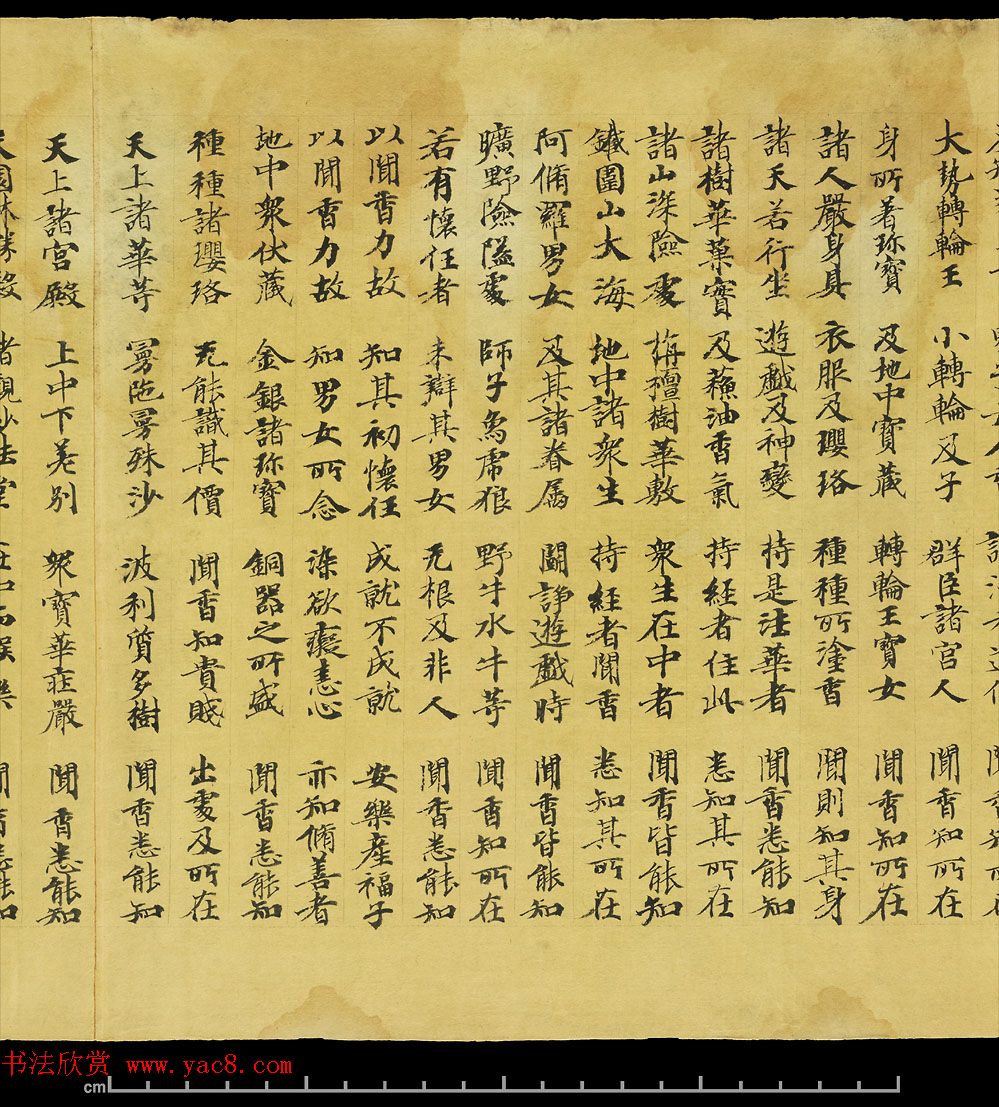 大勢轉輪王 小轉輪及子 群臣諸宮人 聞香知所在
身所著珎寶 及地中寶藏 轉輪王寶女 聞香知所在
諸人嚴身具 衣服及瓔珞 種種所塗香 聞則知其身
諸天若行坐 遊戲及神變 持是法華者 聞香悉能知
諸樹華菓實 及蘓油香氣 持經者住此 悉知其所在
諸山深險處 栴檀樹華敷 衆生在中者 聞香皆能知
鐵圍山大海 地中諸衆生 持經者聞香 悉知其所在
阿脩羅男女 及其諸眷属 闘諍遊戲時 聞香皆能知
曠野險隘處 師子象虎狼 野牛水牛等 聞香知所在
若有懷任者 未辯其男女 无根及非人 聞香悉能知
以聞香力故 知其初懷任 成就不成就 安樂產福子
以聞香力故 知男女所念 染欲癡恚心 亦知脩善者
地中衆伏藏 金銀諸珎寶 銅器之所盛 聞香悉能知
種種諸瓔珞 无能識其價 聞香知貴賤 出處及所在
天上諸華等 曼陁曼殊沙 波利質多樹 聞香悉能知
天上諸宮殿 上中下差別 衆寶華莊嚴 聞香悉能知
天園林勝殿 諸觀妙法堂 在中而娛樂 聞香悉能知
书法欣赏 www.yac8.com
cm